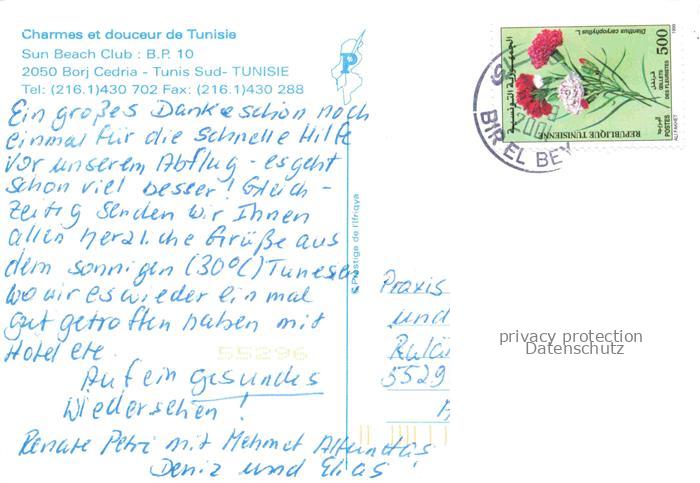 Charmes et douceur de Tunisie
Sun Beach Club : B.P. 10
2050 Borj Cedria - Tunis Sud- TUNISIE
Tel: (216.1)430 702 Fax: (216.1)430 288
P
Ein großes Dankeschön noch
einmal für die schnelle Hilfe
vor unserem Abflug - es geht
schon viel besser! Gleich-
zeitig senden wir Ihnen
allen herzliche Grüße aus
dem sonnigen (30°C) Tunesien
wo wir es wieder einmal
gut getroffen haben mit
Hotel etc.
Auf ein gesundes
Wiedersehen!
Renate Petri mit Mehmet
Deniz und Elias
Prestige de l'Ifriqya
55296
Praxis
und
5529
privacy protection
Datenschutz
BIR EL BEY
Dianthus caryophyllus L.
500
1999
الجمهورية التونسية
قرنفل
OEILLETS
DES FLEURISTES
البريد
POSTES
REPUBLIQUE TUNISIENNE